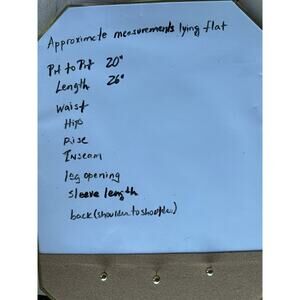 Approximate measurements lying flat
Pit to Pit 20"
Length 26"
Waist
Hips
Rise
Inseam
leg opening
sleeve length
back (shoulder to shoulder)